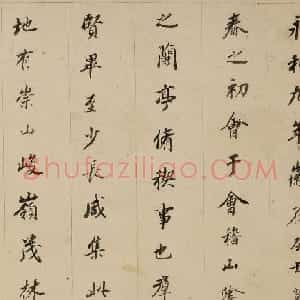 永和九年歲在癸丑
春之初會于會稽山陰
之蘭亭脩禊事也羣
賢畢至少長咸集此
地有崇山峻嶺茂林
Shufaziliao.com